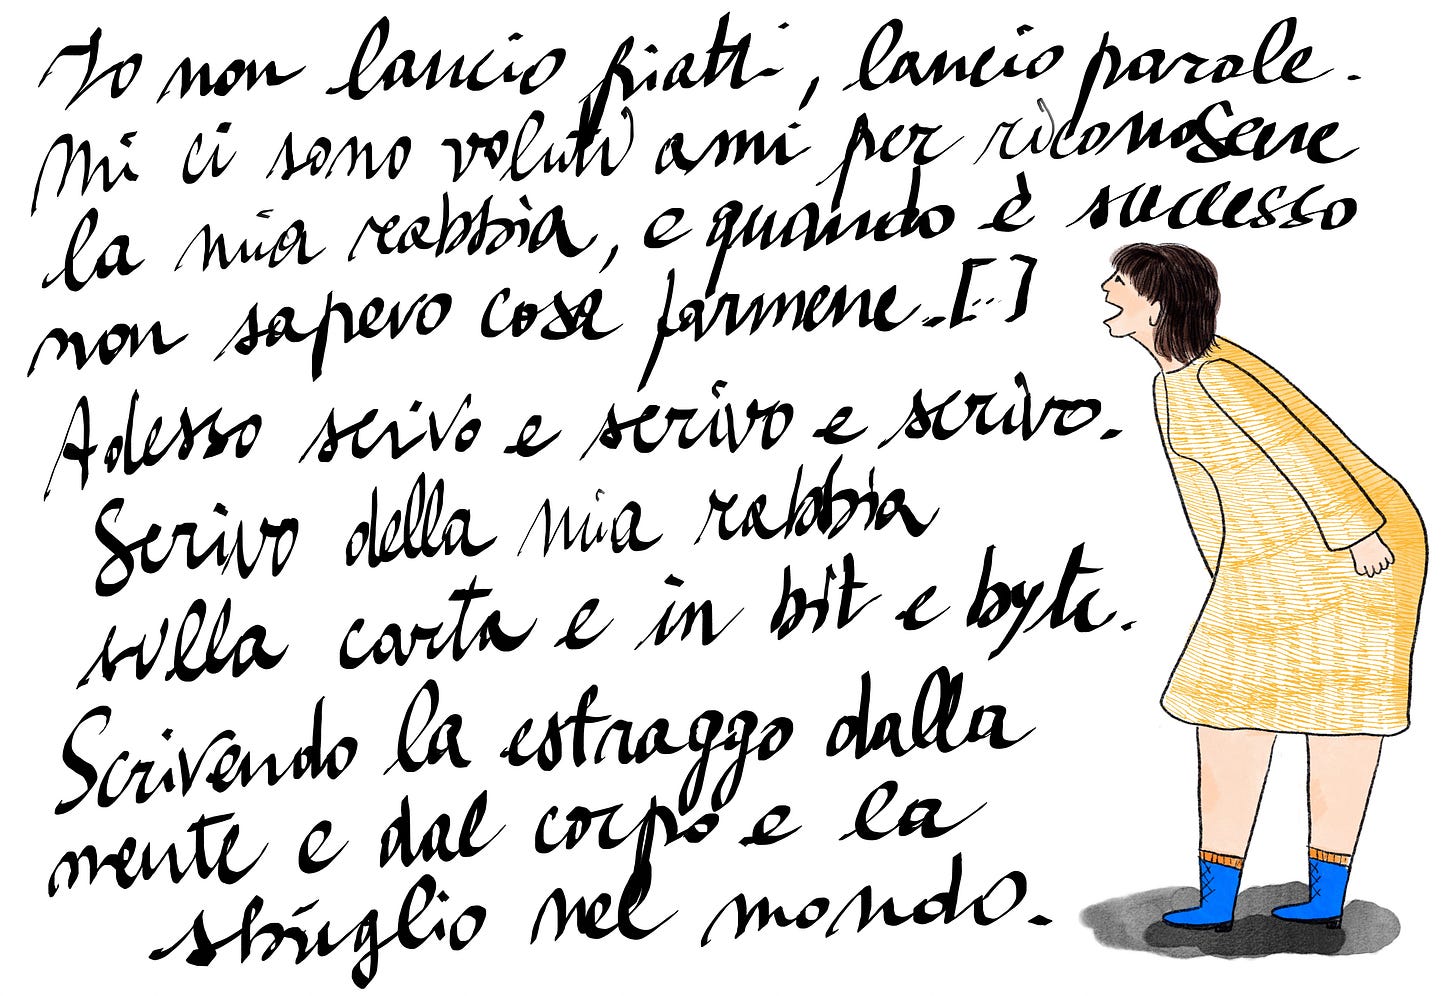 Io non lancio piatti, lancio parole.
Mi ci sono voluti anni per riconoscere
la mia rabbia, e quando è successo
non sapevo cosa farmene.[..]
Adesso scrivo e scrivo e scrivo.
Scrivo della mia rabbia
sulla carta e in bit e byte.
Scrivendo la estraggo dalla
mente e dal corpo e la
sbriglio nel mondo.